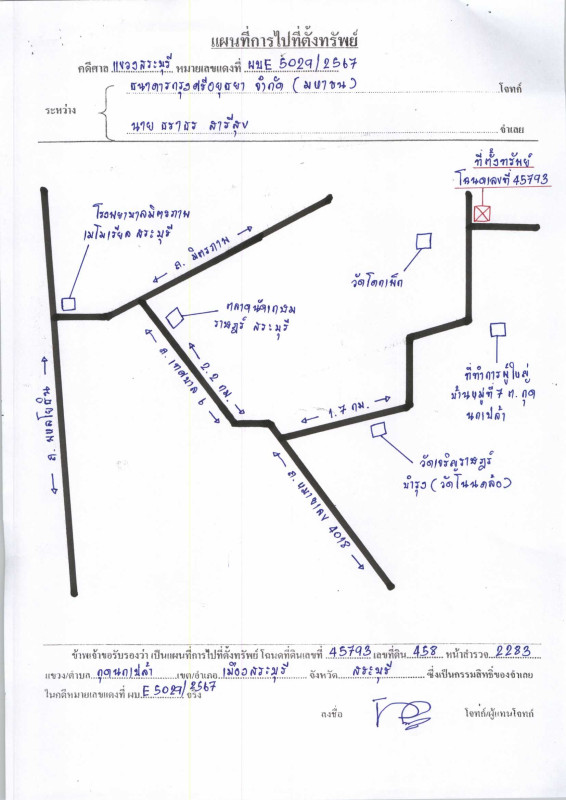 แผนที่การไปที่ตั้งทรัพย์
คดีศาล แขวงสระบุรี หมายเลขแดงที่ ผบE 5029/2567
ธนาคารกรุงศรีอยุธยา จำกัด (มหาชน) โจทก์
ระหว่าง
นาย ธราธร สารีสุข จำเลย
ที่ตั้งทรัพย์
โฉนดเลขที่ 45793
โรงพยาบาลมิตรภาพ
เมโมเรียล สระบุรี
← ถ. มิตรภาพ →
วัดโคกเพ็ก
ตลาดนัดเกษม
ราษฎร์ สระบุรี
← ถ. เทศบาล 6 →
← 2.2 กม. →
← ถ. พหลโยธิน →
ที่ทำการผู้ใหญ่
บ้านหมู่ที่ 7 ต. กุด
นกเปล้า
← 1.7 กม. →
วัดเจริญราษฎร์
บำรุง (วัดโนนคล้อ)
← ถ. หมายเลข 4018 →
ข้าพเจ้าขอรับรองว่า เป็นแผนที่การไปที่ตั้งทรัพย์ โฉนดที่ดินเลขที่ 45793 เลขที่ดิน 458 หน้าสำรวจ 2283
แขวง/ตำบล กุดนกเปล้า เขต/อำเภอ เมืองสระบุรี จังหวัด สระบุรี ซึ่งเป็นกรรมสิทธิ์ของจำเลย
ในคดีหมายเลขแดงที่ ผบ. E 5029/2567 จริง
ลงชื่อ โจทก์/ผู้แทนโจทก์